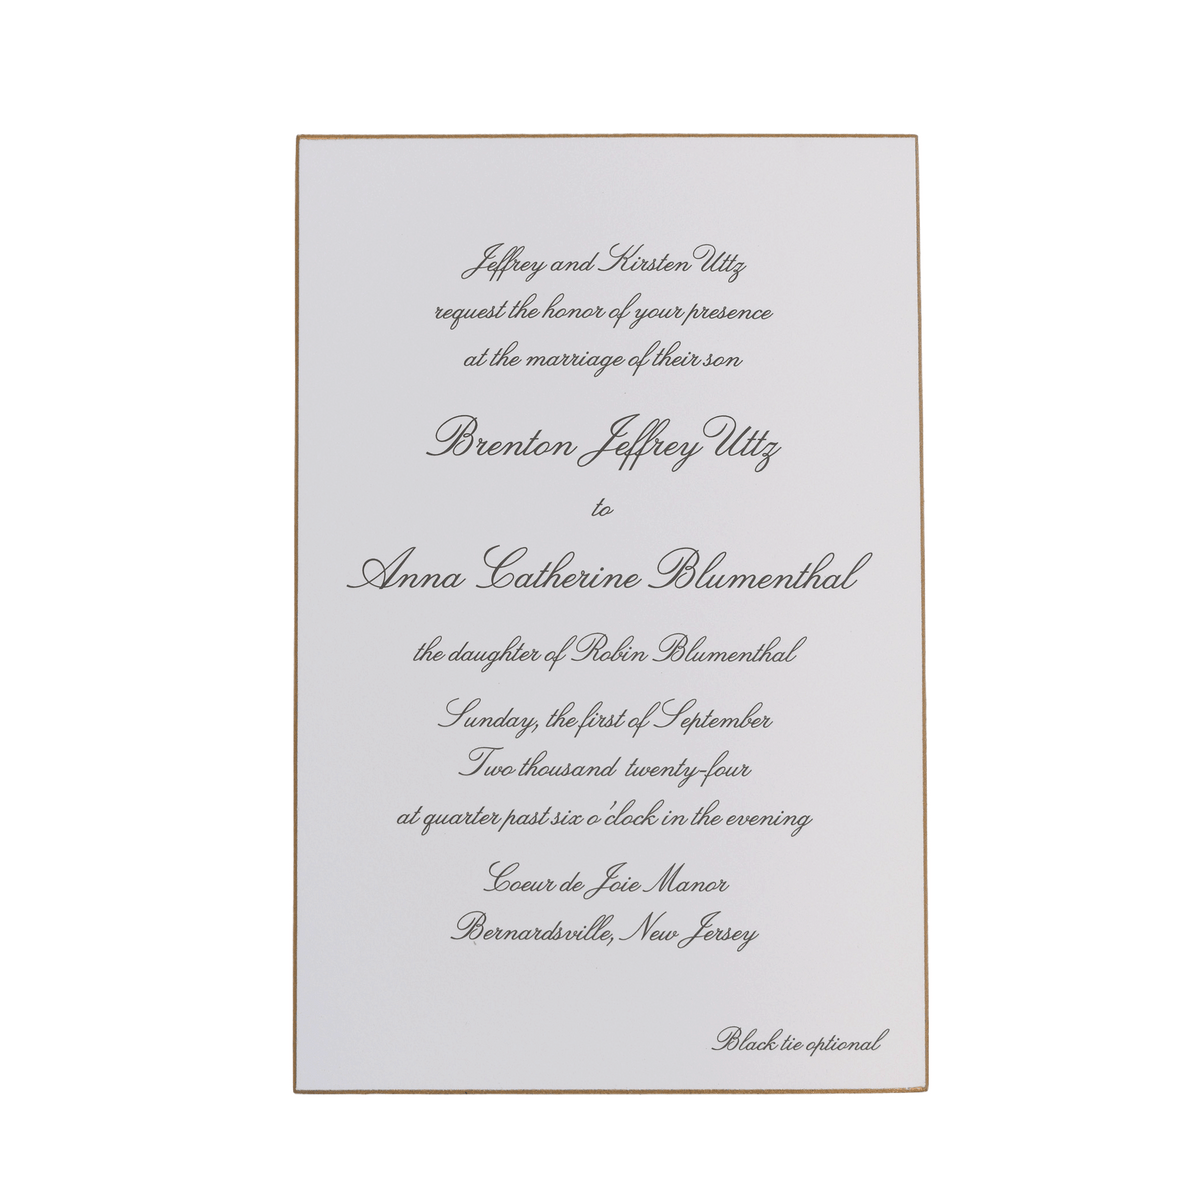 Jeffrey and Kirsten Uttz
request the honor of your presence
at the marriage of their son
Brenton Jeffrey Uttz
to
Anna Catherine Blumenthal
the daughter of Robin Blumenthal
Sunday, the first of September
Two thousand twenty-four
at quarter past six o'clock in the evening
Coeur de Joie Manor
Bernardsville, New Jersey
Black tie optional